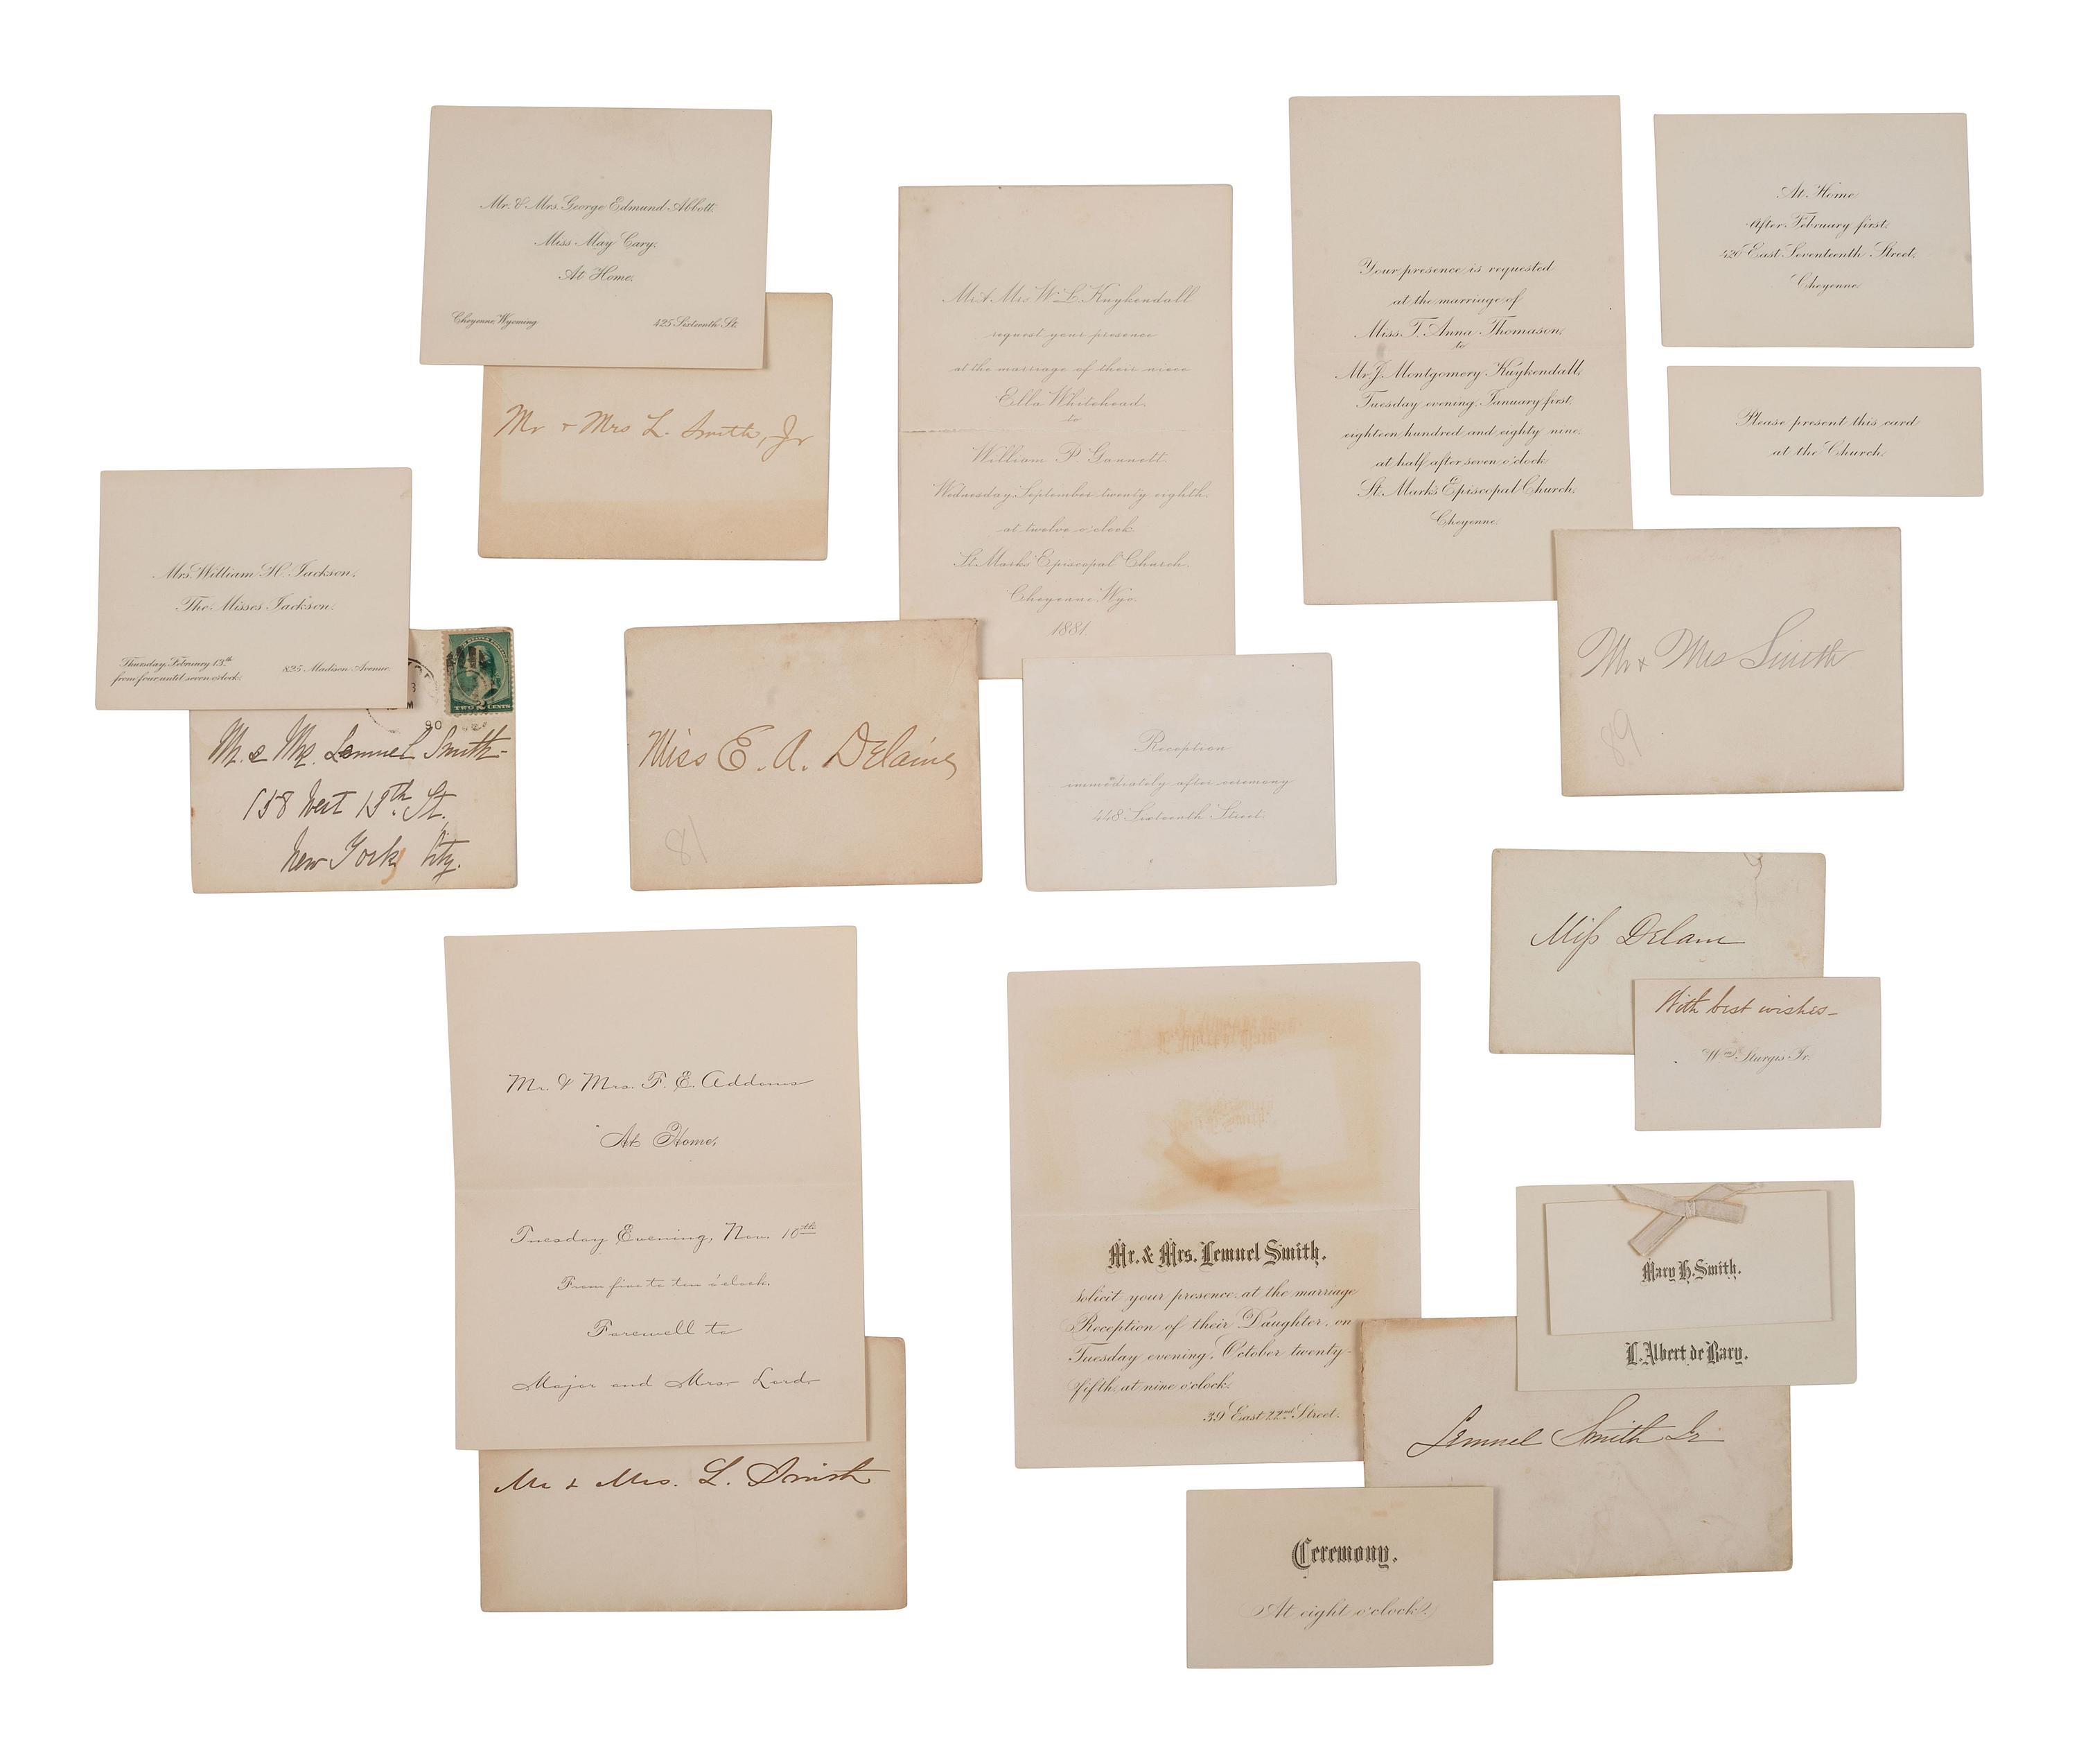 Mr. & Mrs. George Edmund Abbott.
Miss May Cary.
At Home.
Cheyenne, Wyoming
425 Sixteenth St.
Mr + Mrs L. Smith, Jr
Mrs. William H. Jackson,
The Misses Jackson.
Thursday, February 13th
from four until seven o'clock.
825 Madison Avenue.
TWO CENTS
90
Mr. & Mrs. Lemuel Smith-
158 West 13th St.
New York City.
Mr. & Mrs W. L. Kuykendall
request your presence
at the marriage of their niece
Ella Whitehead.
to
William P. Gannett.
Wednesday, September twenty eighth.
at twelve o'clock.
St. Marks Episcopal Church.
Cheyenne, Wyo.
1881.
Miss E. A. DeLaine
81
Reception
immediately after ceremony
448 Sixteenth Street.
Your presence is requested
at the marriage of
Miss T. Anna Thomason,
to
Mr. J. Montgomery Kuykendall,
Tuesday evening, January first,
eighteen hundred and eighty nine,
at half after seven o'clock
St. Mark's Episcopal Church,
Cheyenne.
At Home
After February first,
420 East Seventeenth Street,
Cheyenne
Please present this card
at the Church.
Mr & Mrs Smith
89
Miss
With best wishes-
Wm Sturgis Jr.
Mr. & Mrs. F. E. Addoms
At Home,
Tuesday Evening, Nov. 10th
From five to ten o'clock.
Farewell to
Major and Mrs Lord
Mr & Mrs. L. Smith
Mr. & Mrs. Lemuel Smith.
Solicit your presence at the marriage
Reception of their Daughter, on
Tuesday evening, October twenty-
fifth, at nine o'clock.
39 East 22nd Street.
Mary H. Smith.
L. Albert de Bary.
Lemuel Smith Jr
Ceremony.
At eight o'clock.